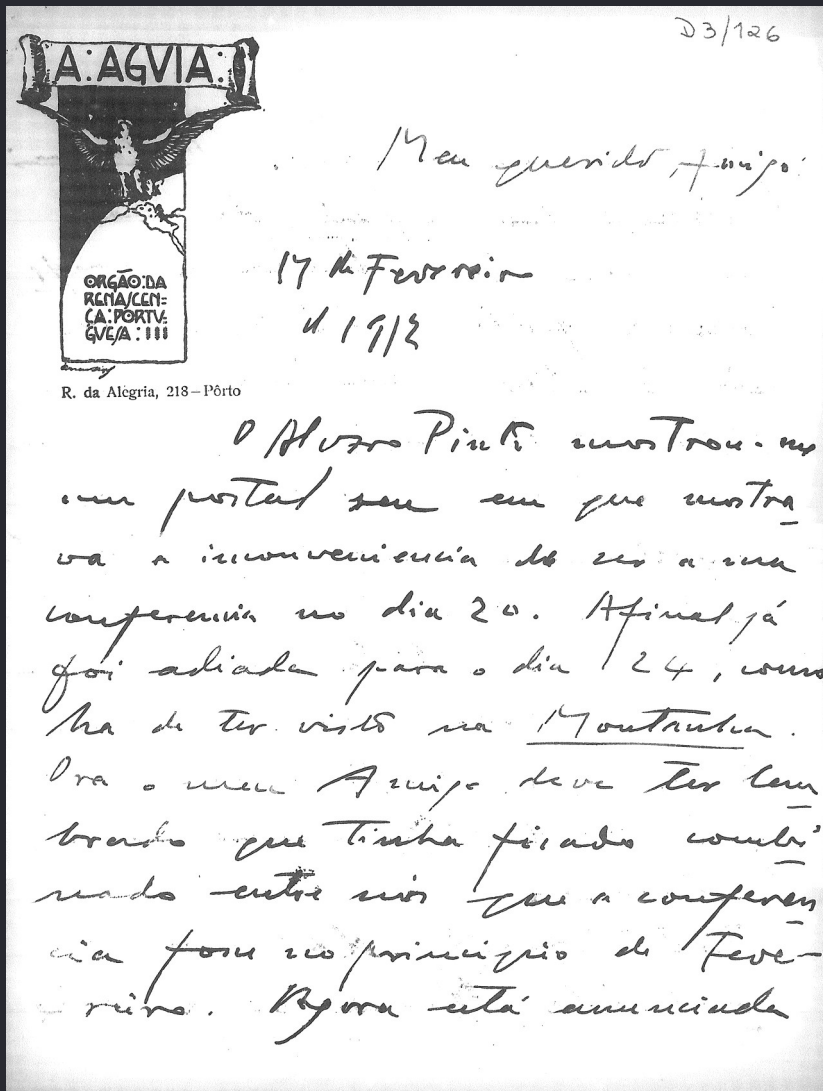 D3/126
A: AGVIA:
Meu querido Amigo
17 de Fevereiro
d 1912
ORGÃO:DA
RENASCEN=
ÇA:PORTV=
GVESA:III
R. da Alegria, 218–Pôrto
O Alvaro Pinto mostrou-me
um postal seu em que mostra-
va a inconveniencia de ser a sua
conferencia no dia 20. Afinal já
foi adiada para o dia 24, como
ha de ter visto na Montanha.
Ora o meu Amigo deve ter lem-
brado que tinha ficado combi-
nado entre nós que a conferen-
cia fosse no principio de Feve-
reiro. Agora está anunciada